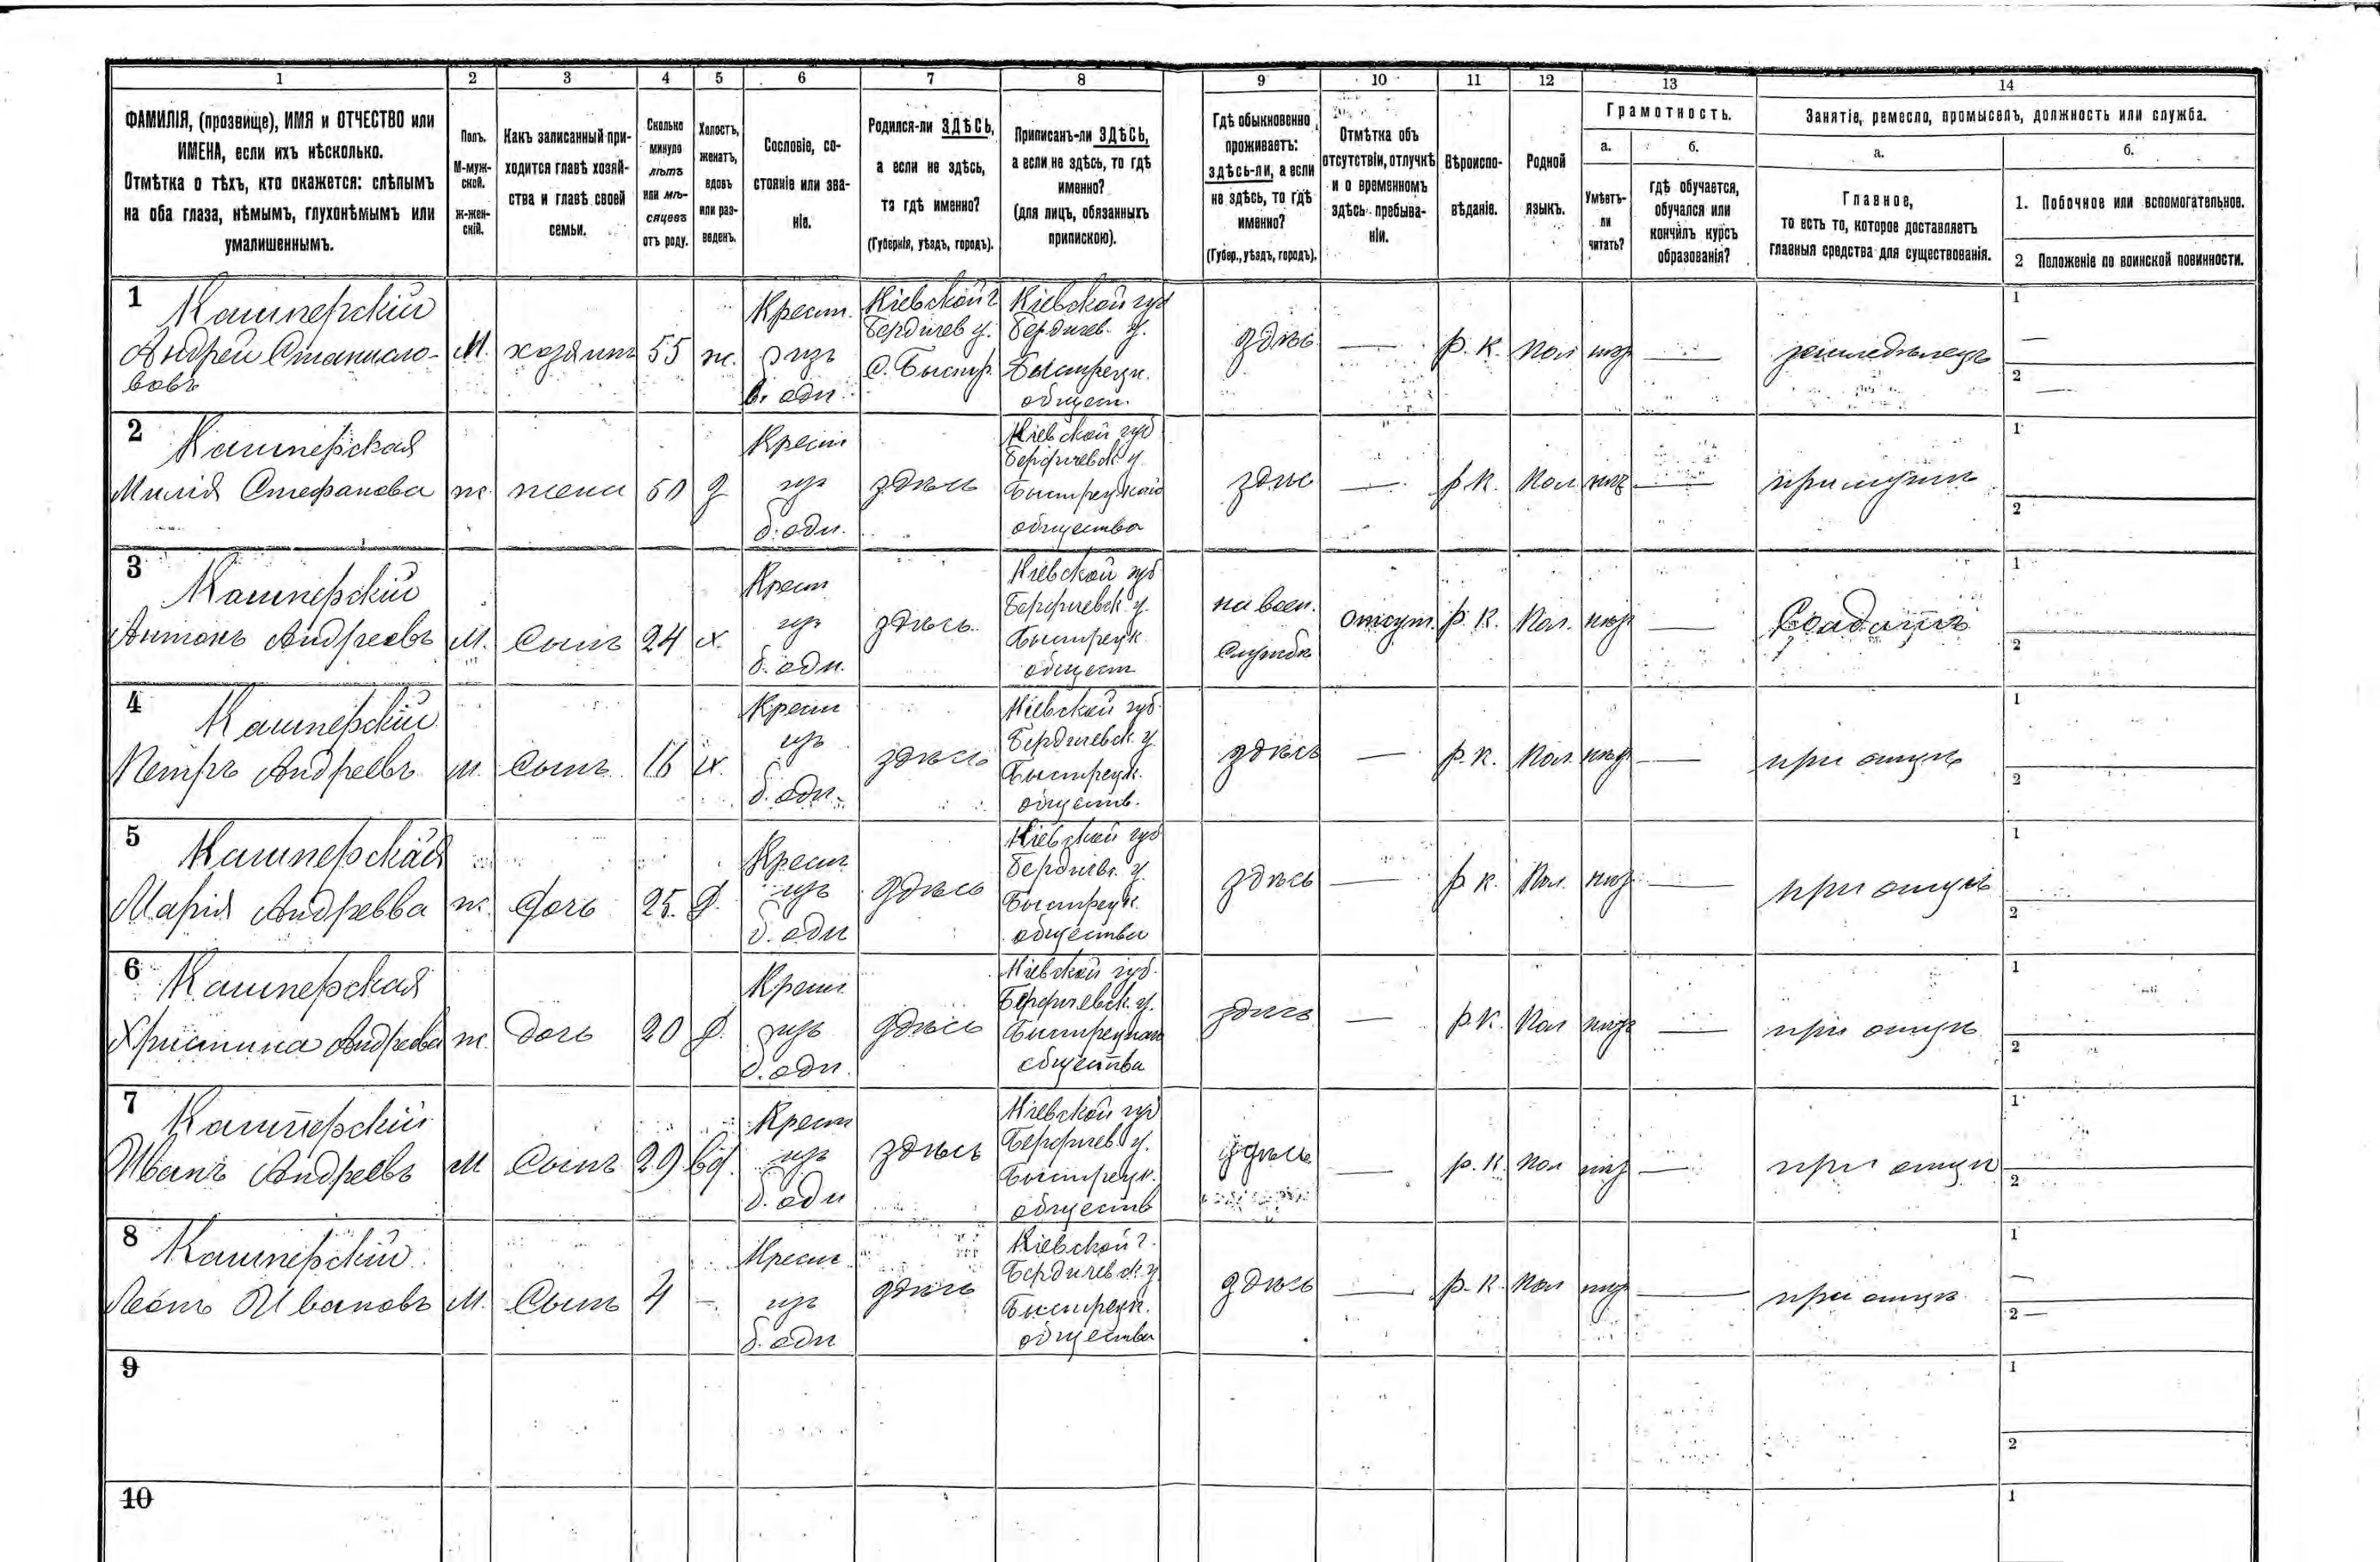 1 2 3 4 5 6 7 8 9 10 11 12 13 14
ФАМИЛІЯ, (прозвище), ИМЯ и ОТЧЕСТВО или
ИМЕНА, если ихъ нѣсколько.
Отмѣтка о тѣхъ, кто окажется: слѣпымъ
на оба глаза, нѣмымъ, глухонѣмымъ или
умалишеннымъ.
Полъ.
М-муж-
ской.
ж-жен-
скій.
Какъ записанный при-
ходится главѣ хозяй-
ства и главѣ своей
семьи.
Сколько
минуло
лѣтъ
или мѣ-
сяцевъ
отъ роду.
Холостъ,
женатъ,
вдовъ
или раз-
веденъ.
Сословіе, со-
стояніе или зва-
ніе.
Родился-ли ЗДѢСЬ,
а если не здѣсь,
то гдѣ именно?
(Губернія, уѣздъ, городъ).
Приписанъ-ли ЗДѢСЬ,
а если не здѣсь, то гдѣ
именно?
(для лицъ, обязанныхъ
припискою).
Гдѣ обыкновенно
проживаетъ:
здѣсь-ли, а если
не здѣсь, то гдѣ
именно?
(Губер., уѣздъ, городъ).
Отмѣтка объ
отсутствіи, отлучкѣ
и о временномъ
здѣсь пребыва-
ніи.
Вѣроиспо-
вѣданіе.
Родной
языкъ.
Грамотность.
а.
Умѣетъ-
ли
читать?
б.
гдѣ обучается,
обучался или
кончилъ курсъ
образованія?
Занятіе, ремесло, промыселъ, должность или служба.
а.
Главное,
то есть то, которое доставляетъ
главныя средства для существованія.
б.
1. Побочное или вспомогательное.
2 Положеніе по воинской повинности.
1
Кашперскій
Андрей Станисло-
вовъ
М.
хозяинъ
55
ж.
Крест.
изъ
б. одн.
Кіевской г
Бердичев у.
с. Быстр.
Кіевской губ
Бердичев. у.
Быстрецк.
общест.
здѣсь
—
р. к.
пол
нѣт
—
земледѣлецъ
1 —
2 —
2
Кашперская
Стефанова
ж.
жена
50
Крест
изъ
б. одн.
здѣсь
Кіевской губ
Бердичевск у
Быстрецкаго
общества
здѣсь
—
р. к.
пол
нѣт
—
при мужѣ
1
2
3
Кашперскій
Антонъ Андреевъ
М.
сынъ
24
х.
Крест
изъ
б. одн.
здѣсь
Кіевской губ
Бердичевск. у.
Быстрецк
общест
на воен.
службѣ
отсут.
р. к.
пол.
нѣт
—
Солдатъ
1
2
4
Кашперскій
Петръ Андреевъ
м.
сынъ
16
х.
Крест
изъ
б. одн.
здѣсь
Кіевской губ.
Бердичевск. у.
Быстрецк.
обществ.
здѣсь
—
р. к.
пол.
нѣт
—
при отцѣ
1
2
5
Кашперская
Марія Андреева
ж.
дочь
25.
д.
Крест.
изъ
б. одн
здѣсь
Кіевской губ
Бердичев. у.
Быстрецк.
общества
здѣсь
—
р к.
пол.
нѣт
—
при отцѣ
1
2
6
Кашперская
Христина Андреева
ж.
дочь
20
д.
Крест.
изъ
б. одн.
здѣсь
Кіевской губ.
Бердичевск. у.
Быстрецкаго
общества
здѣсь
—
р. к.
пол
нѣт
—
при отцѣ
1
2
7
Кашперскій
Иванъ Андреевъ
М
сынъ
29
вд.
Крест
изъ
б. одн
здѣсь
Кіевской губ
Бердичев. у.
Быстрецк.
обществ
здѣсь
—
р. к.
пол
нѣт
—
при отцѣ
1
2
8
Кашперскій
Леонъ Ивановъ
М.
сынъ
4
—
Крест.
изъ
б. одн
здѣсь
Кіевской г.
Бердичевск. у
Быстрецк.
общества
здѣсь
—
р. к.
пол
нѣт
—
при отцѣ
1 —
2 —
9
1
2
10
1